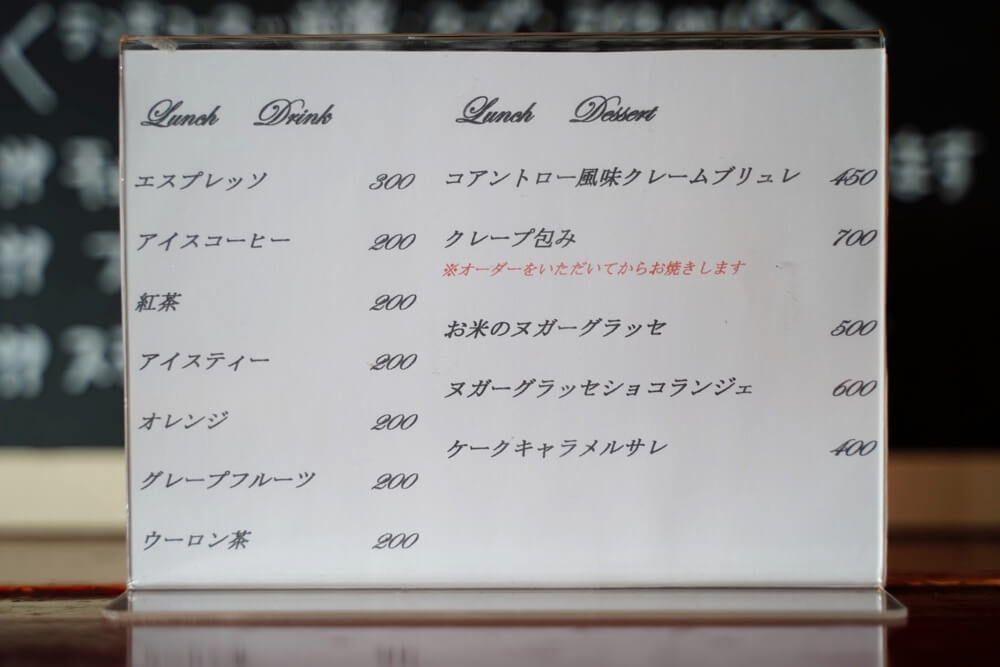 Lunch Drink
エスプレッソ 300
アイスコーヒー 200
紅茶 200
アイスティー 200
オレンジ 200
グレープフルーツ 200
ウーロン茶 200
Lunch Dessert
コアントロー風味クレームブリュレ 450
クレープ包み 700
※オーダーをいただいてからお焼きします
お米のヌガーグラッセ 500
ヌガーグラッセショコランジェ 600
ケークキャラメルサレ 400